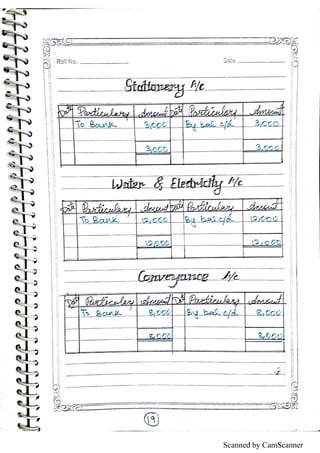 Roll No. Date
Stationery A/c
Date Particulars Amount Date Particulars Amount
To Bank 3,000 By bal c/d 3,000
3,000 3,000
Water & Electricity A/c
Date Particulars Amount Date Particulars Amount
To Bank 12,000 By bal c/d 12,000
12,000 12,000
Conveyance A/c
Date Particulars Amount Date Particulars Amount
To Bank 8,000 By bal c/d 8,000
8,000 8,000
19
Scanned by CamScanner